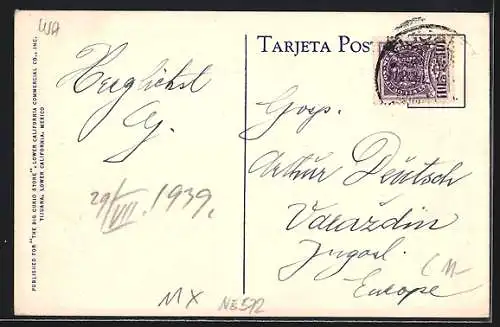 USA
PUBLISHED FOR "THE BIG CURIO STORE" LOWER CALIFORNIA COMMERCIAL CO., INC.
TIJUANA, LOWER CALIFORNIA, MEXICO
TARJETA POS
Herzlichst
29/VII. 1939.
MX
NE572
Gosp.
Arthur Deutsch
Varaždin
Jugosl.
Europe